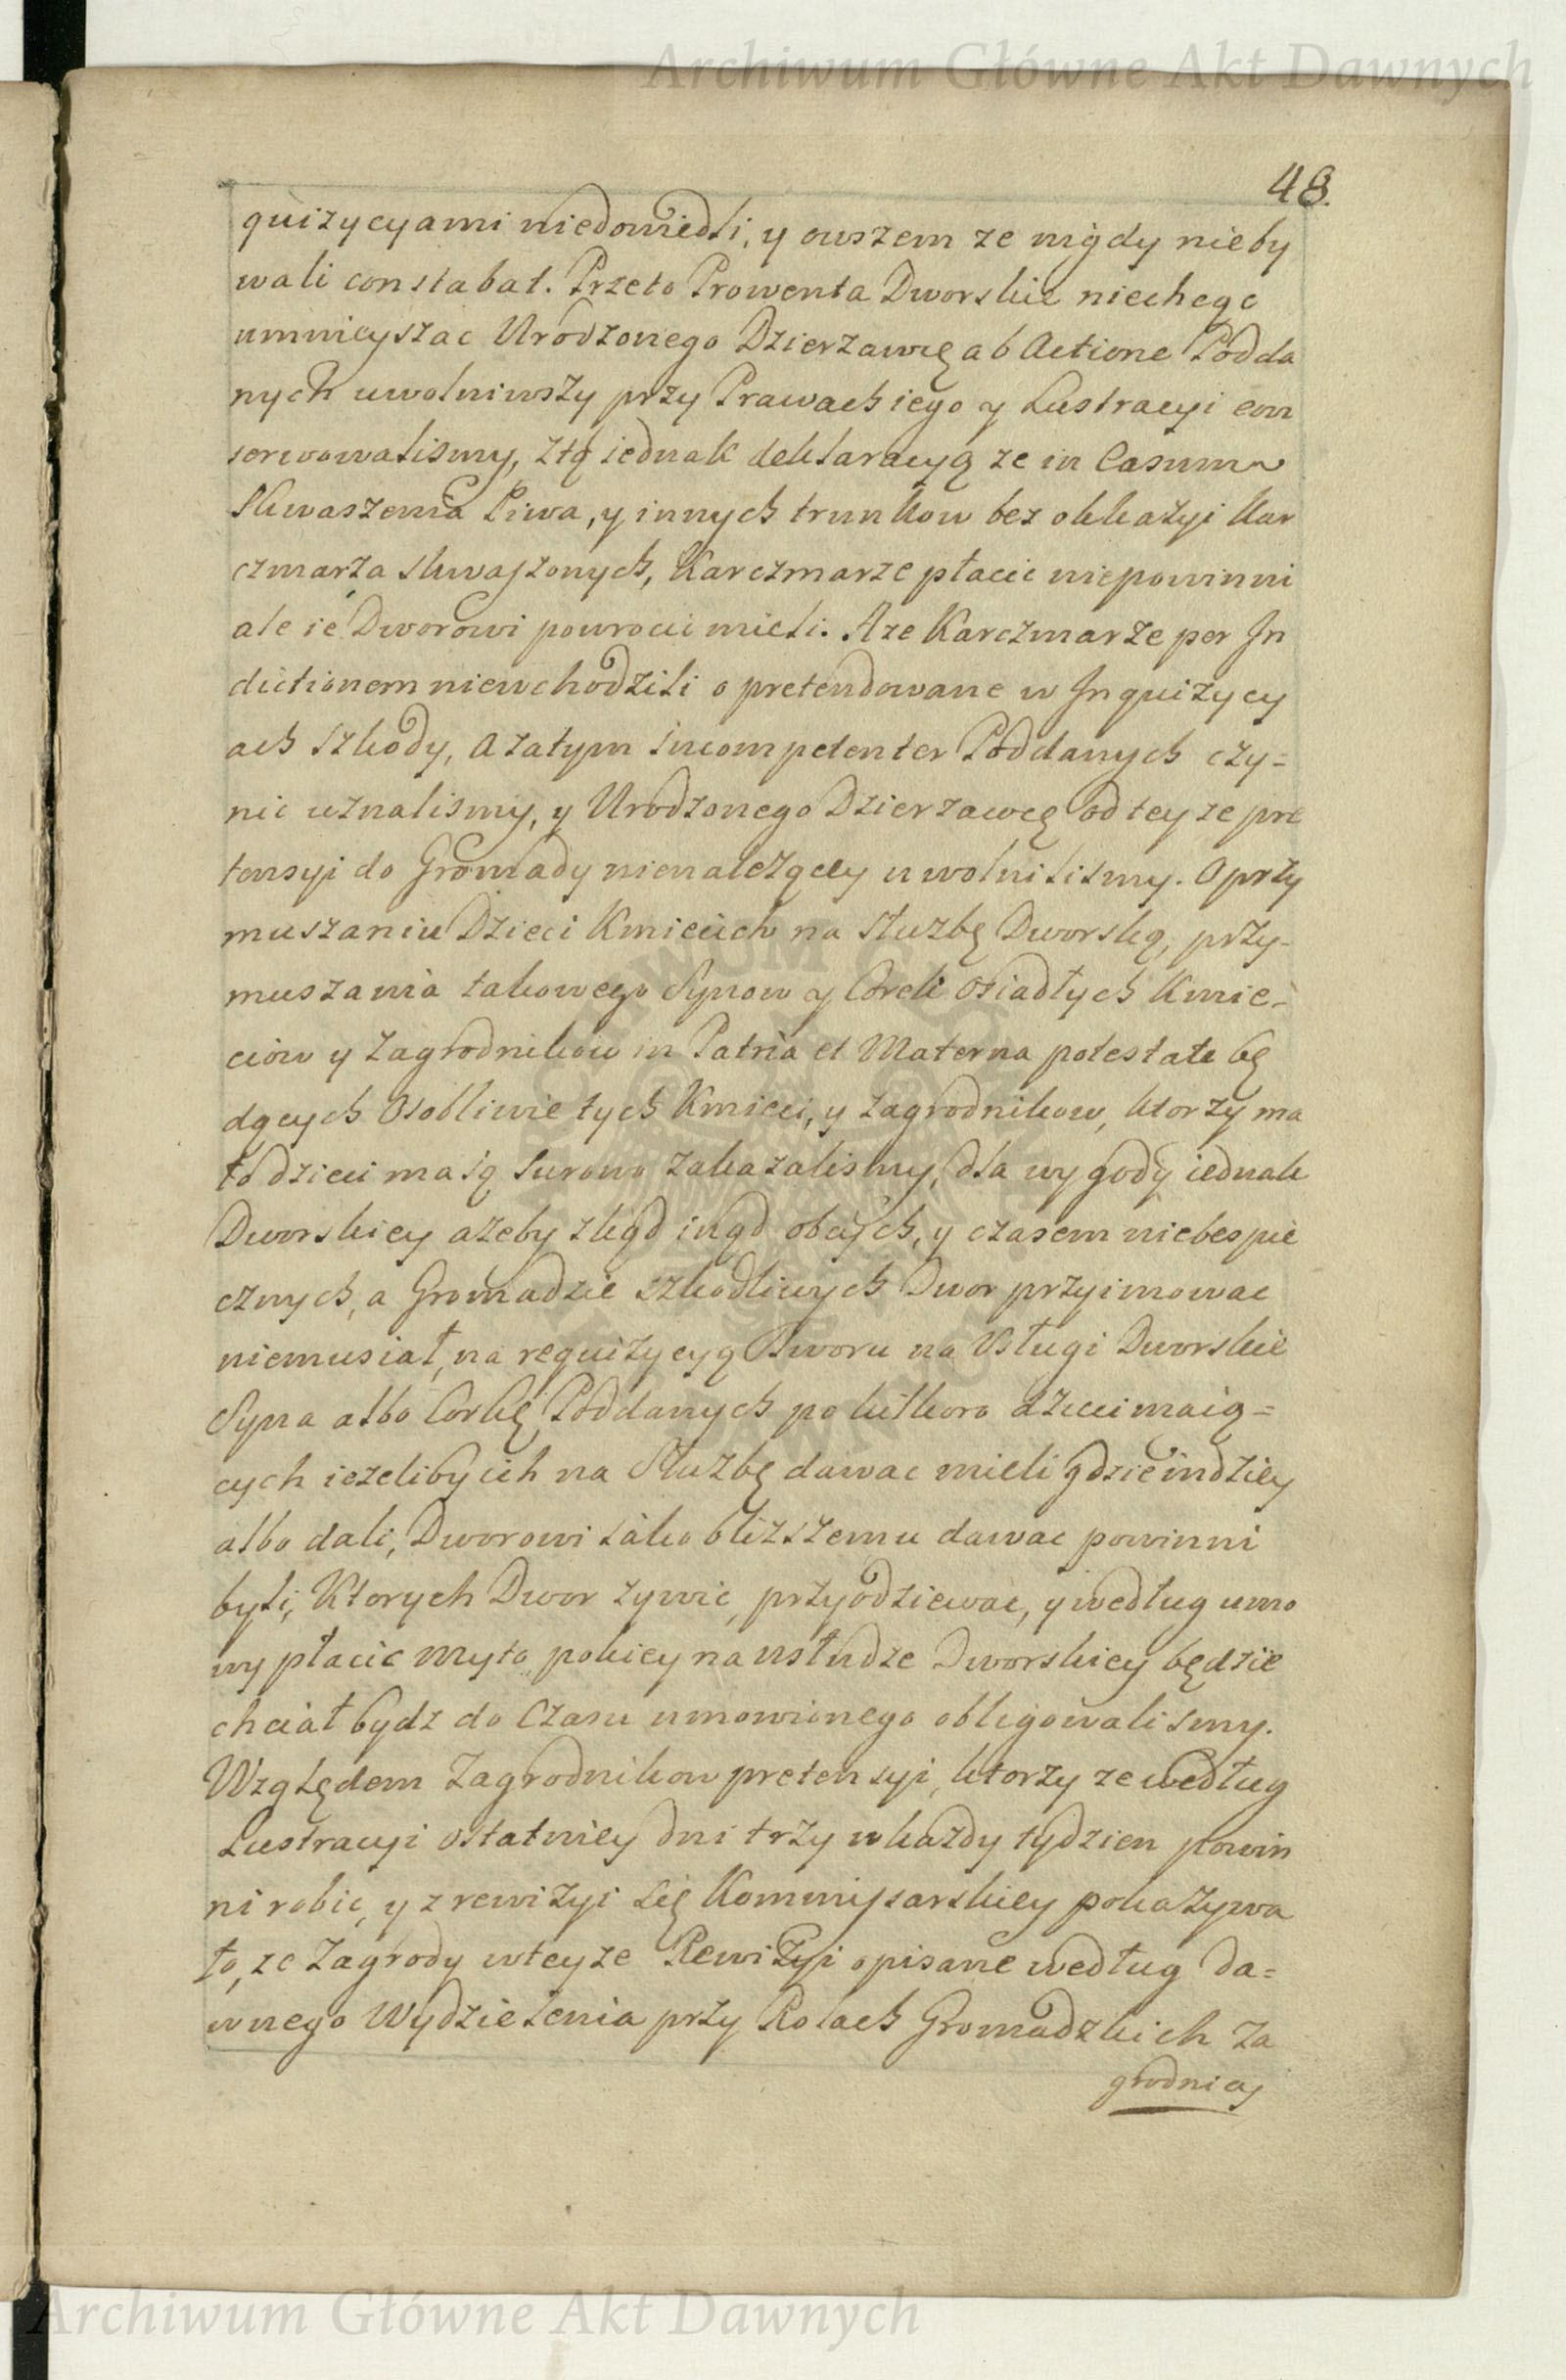 Archiwum Główne Akt Dawnych
48.
quizycyami niedowiedli, y owszem ze nigdy nieby
wali constabat. Przeto Prowenta Dworskie niechcąc
umnieyszac Urodzonego Dzierzawcę ab Actione Podda
nych uwolniwszy przy Prawach iego y Lustracyi con
serwowalismy, z tą iednak deklaracyą ze in Casum
Skwaszenia Piwa, y innych trunkow bez okkazyi Kar
czmarza skwaszonych, Karczmarze płacic niepowinni
ale ie Dworowi powrocic mieli. A ze Karczmarze per In
dictionem niewchodzili o pretendowane w Inquizycy
ach szkody, a zatym incompetenter Poddanych czy=
nic uznalismy, y Urodzonego Dzierzawcę od teyze pre
tensyi do Gromady nienalezącey uwolnilismy. O przy
muszaniu Dzieci Kmiecich na Służbę Dworską, przy-
muszania takowego Synow y Corek Osiadłych Kmie-
ciow y Zagrodnikow in Patria et Materna potestate bę
dących Osobliwie tych Kmieci, y Zagrodnikow, ktorzy ma
ło dzieci maią surowo zakazalismy, dla wygody iednak
Dworskiey azeby zkąd inąd obcych, y czasem niebespie
cznych, a Gromadzie szkodliwych Dwor przyimowac
niemusiał, na requizycyą Dworu na Usługi Dworskie
Syna albo Corkę Poddanych po kilkoro dzieci maią=
cych iezeliby ich na Służbę dawac mieli gdzieindziey
albo dali, Dworowi iako blizszemu dawac powinni
byli, Ktorych Dwor zywic, przyodziewac, y według umo
wy płacic myto, pokiey na usłudze Dworskiey będzie
chciał bydz do Czasu umowionego obligowalismy.
Względem Zagrodnikow pretensyi, ktorzy ze według
Lustracyi ostatniey dni trzy w kazdy tydzien powin
ni robic, y z rewizyi się Kommissarskiey pokazywa
ło, ze Zagrody w teyze Rewizyi opisane według da=
wnego Wydzielenia przy Rolach Gromadzkich Za
grodnicy
Archiwum Główne Akt Dawnych